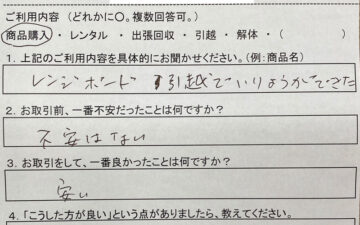 ご利用内容（どれかに〇。複数回答可。）
商品購入 ・ レンタル ・ 出張回収 ・ 引越 ・ 解体 ・（　　　　）
1. 上記のご利用内容を具体的にお聞かせください。（例：商品名）
レンジボード 引越でいりようができた
2. お取引前、一番不安だったことは何ですか？
不安はない
3. お取引をして、一番良かったことは何ですか？
安い
4. 「こうした方が良い」という点がありましたら、教えてください。